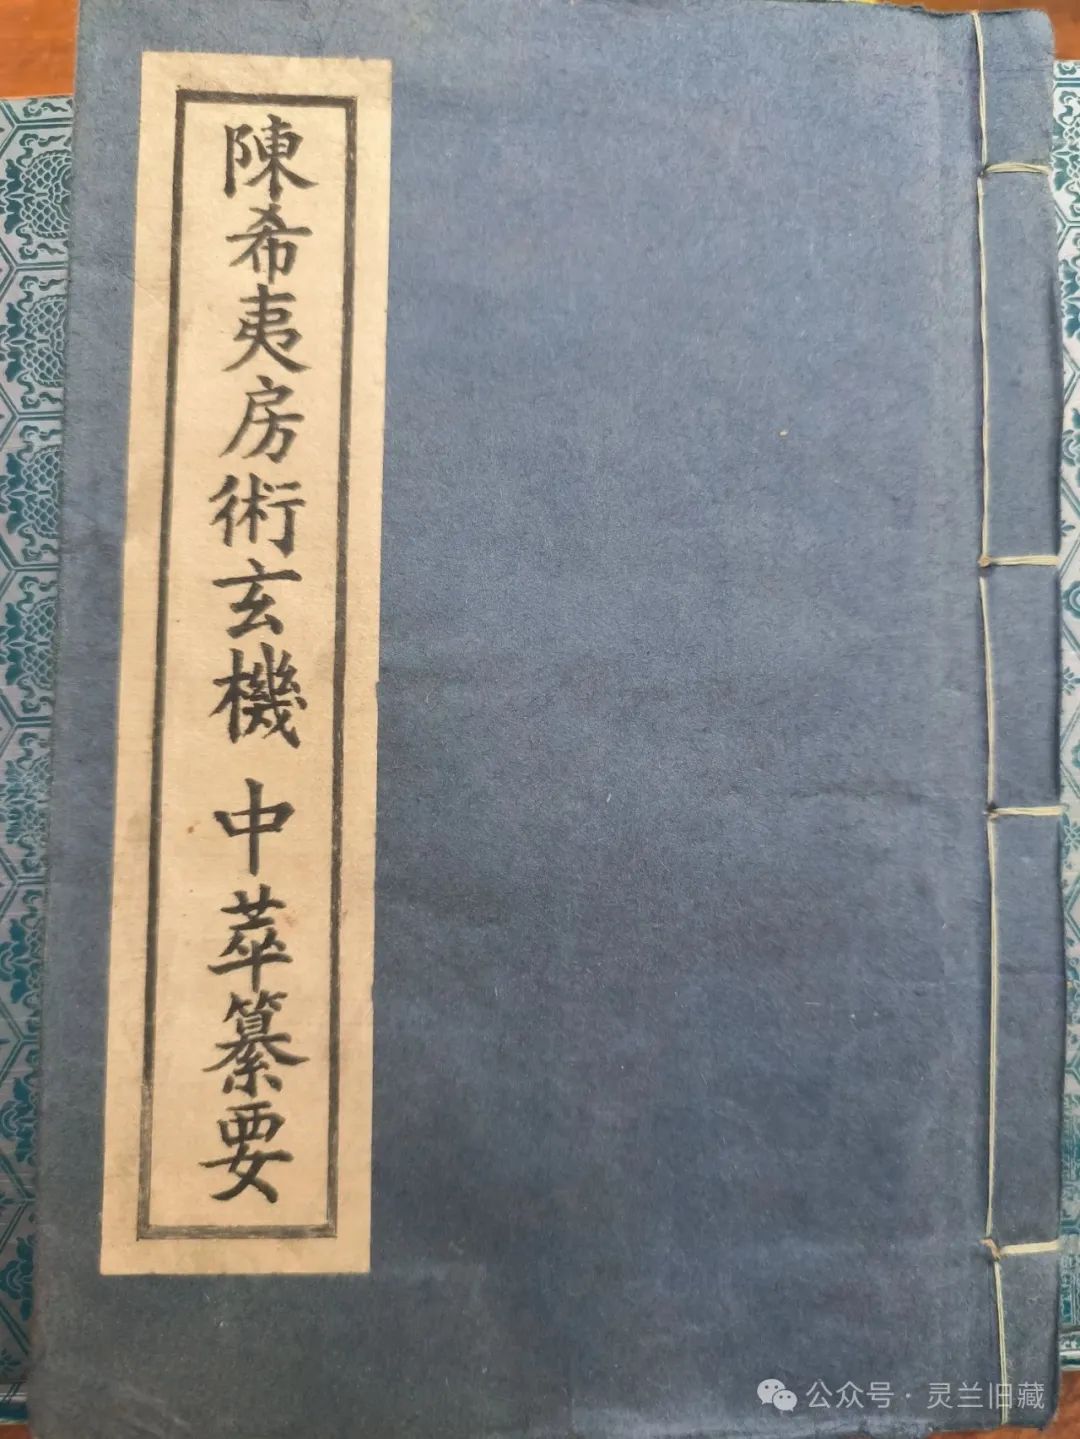 陳希夷房術玄機 中萃纂要
公众号·灵兰旧藏